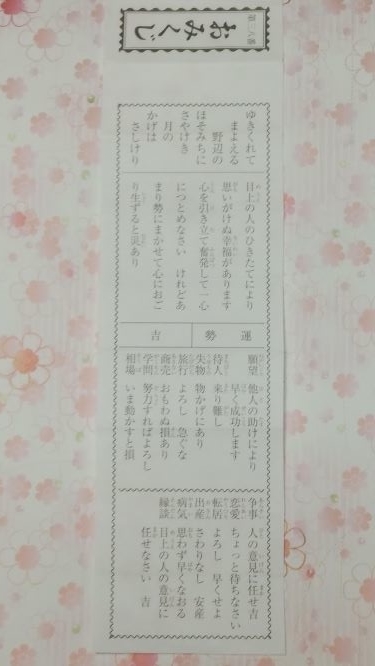 第二八番
おみくじ
ゆきくれて
まよえる
野辺の
ほそみちに
さやけき
月の
かげは
さしけり
目上の人のひきたてにより
思いがけぬ幸福があります
心を引き立て奮発して一心
につとめなさい けれどあ
まり勢にまかせて心におご
り生ずると災あり
運勢 吉
願望 他人の助けにより
早く成功します
待人 来り難し
失物 物かげにあり
旅行 よろし 急ぐな
商売 おもわぬ損あり
学問 努力すればよろし
相場 いま動かすと損
争事 人の意見に任せ吉
恋愛 ちょっと待ちなさい
転居 よろし 早くせよ
出産 さわりなし 安産
病気 思わず早くなおる
縁談 目上の人の意見に
任せなさい 吉